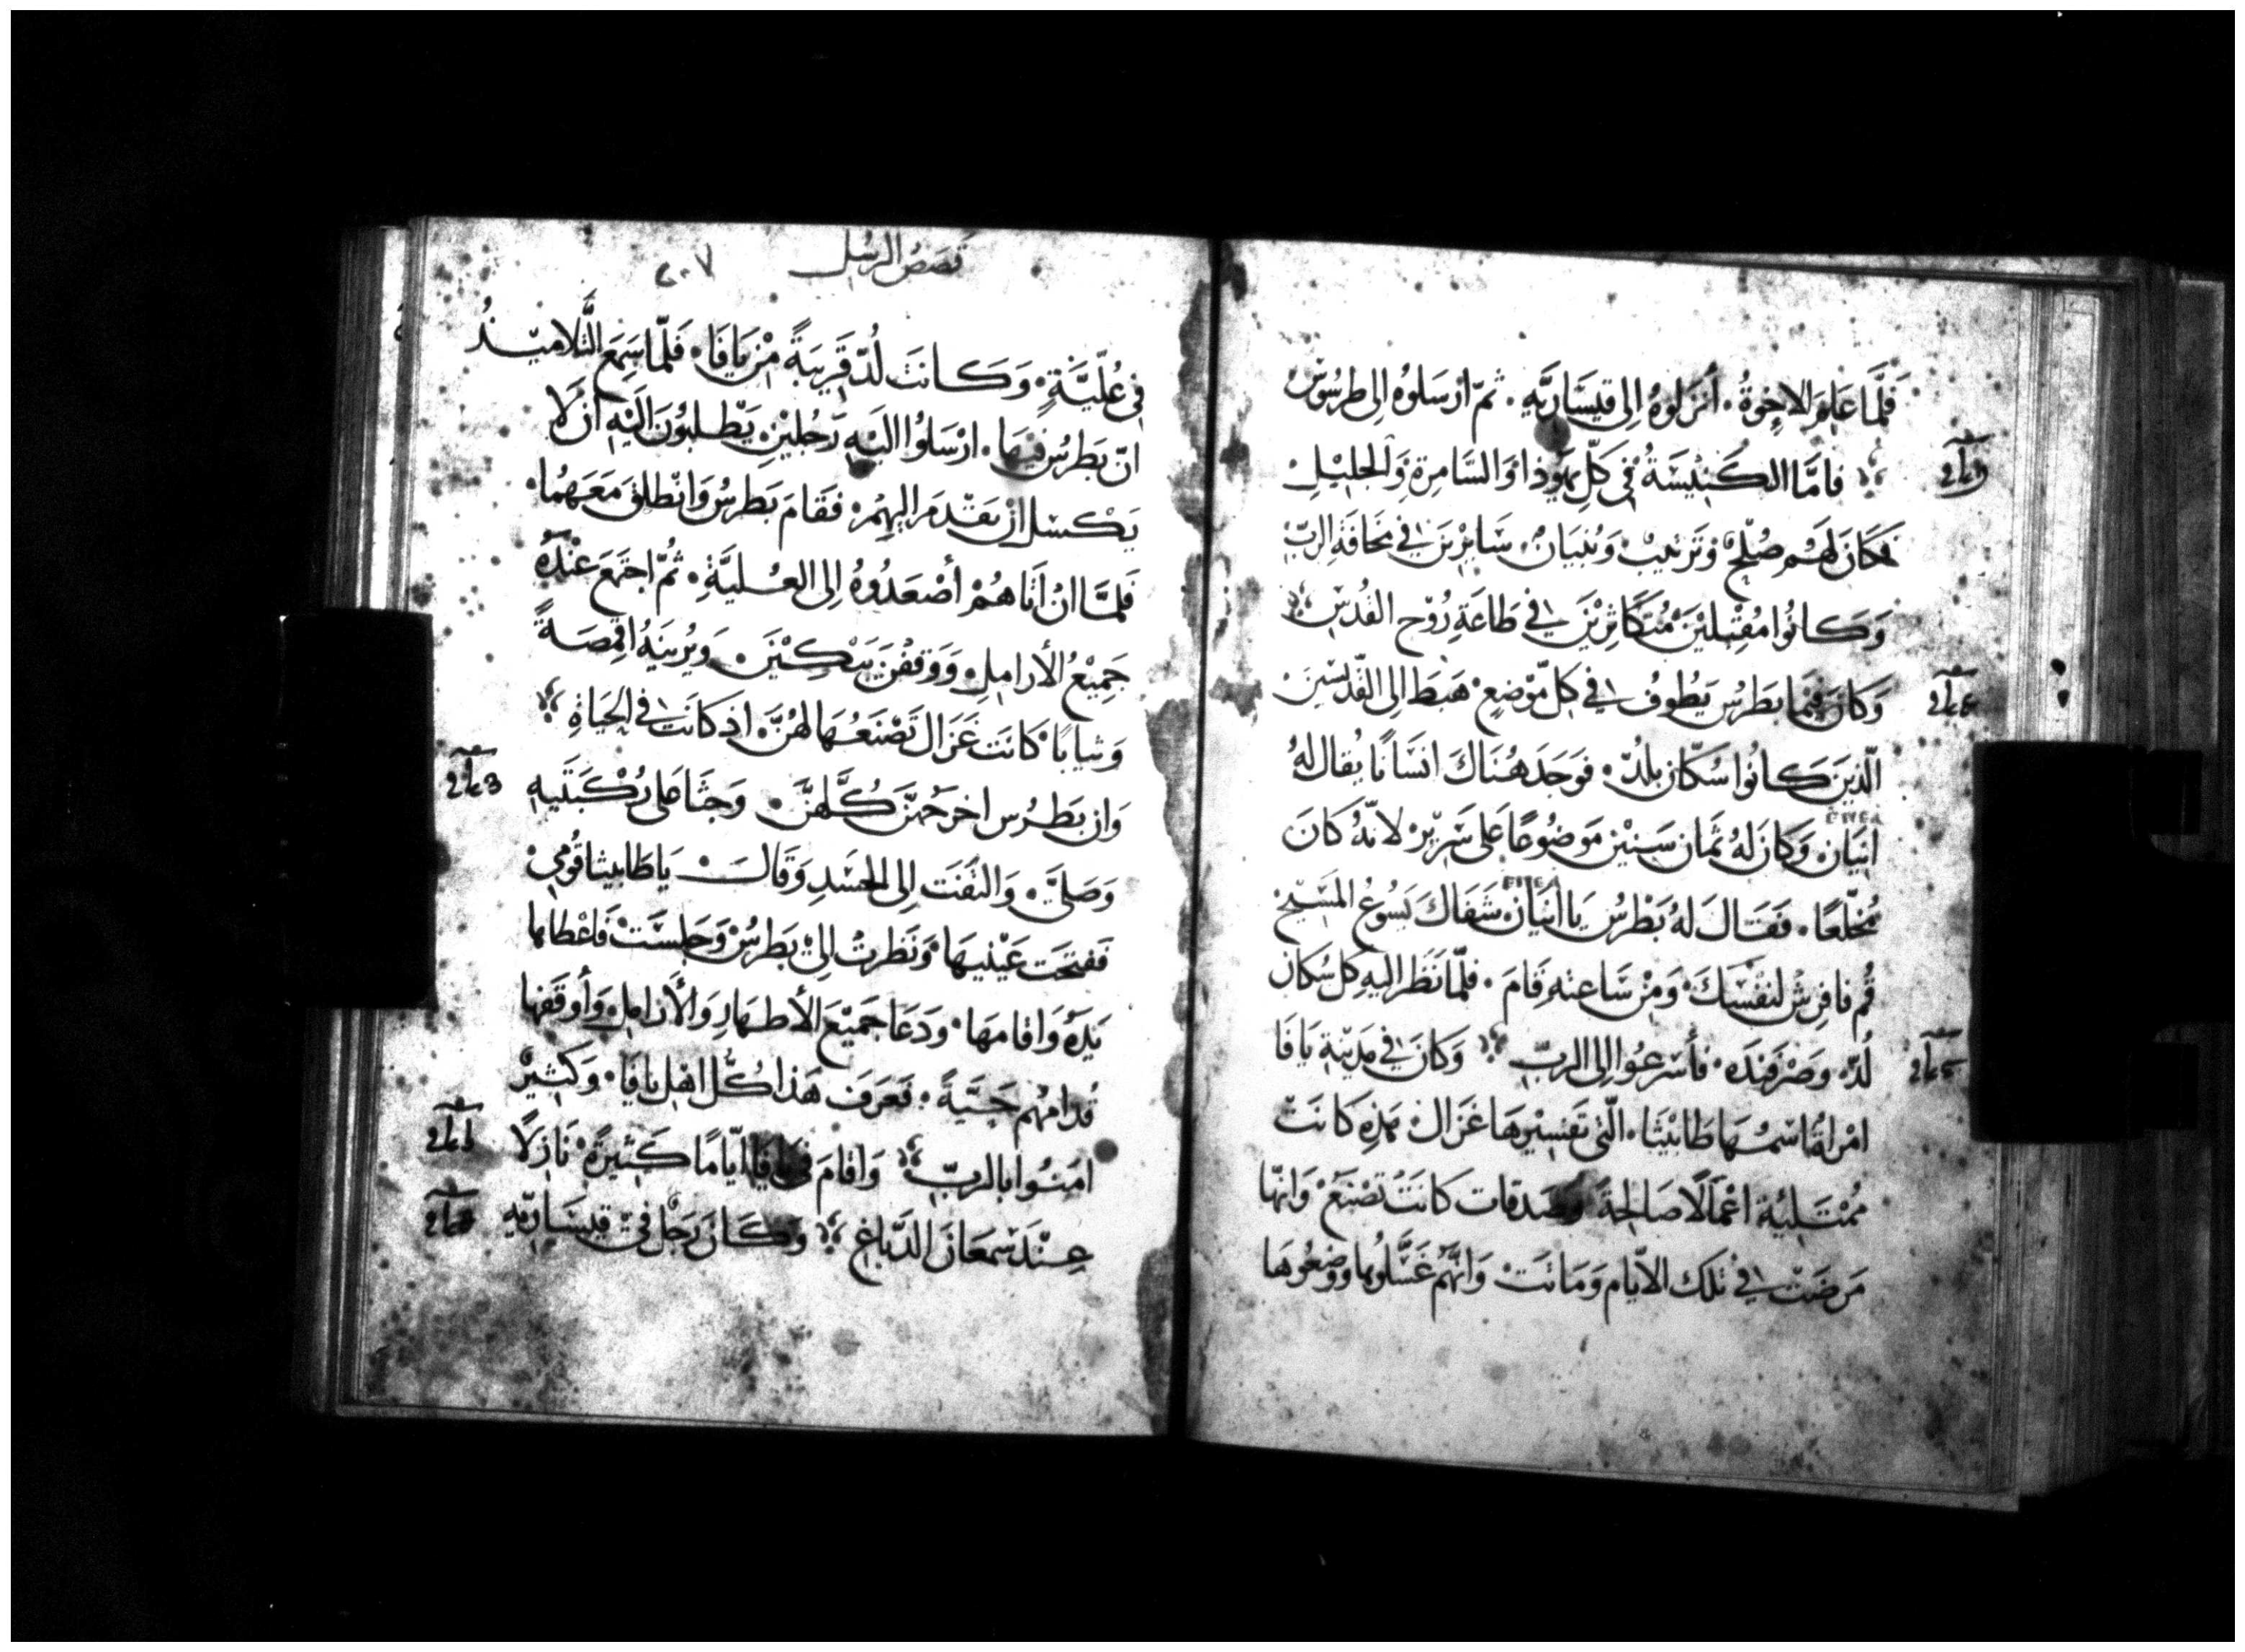 فَلَمَّا عَلِمَ الاخوةُ. أنزلوهُ إلى قيسَاريَّهِ. ثمّ ارْسَلوهُ إلى طرسُوسَ
فامَّا الكَنيْسَةُ في كلّ يهوذا وَالسَّامِرةِ وَالجليْلِ
فكانَ لهَم صُلحٌ وَترتيبْ وَبُنيَانٌ. سَايرْينَ في مَخافةِ الربّ
وَكانُوا مُقبْلينَ مُتكَاثِرْينَ في طَاعَةِ رُوْح القُدسِ
وَكانَ فيْما بَطرُس يَطُوفُ في كلّ مَوْضعٍ هَبَط إلى القدّيسينَ
الّذينَ كانُوا سُكّان بلُدّ. فوَجَدَ هُنَاكَ انسَانًا يُقال لهُ
انيَان وَكانَ لهُ ثمان سَنيْن مَوضُوعًا عَلى سَريْر لانّهُ كانَ
مُخلّعًا. فقَالَ لهُ بَطْرسُ يَا انيَان شَفاكَ يَسُوعُ المسَيح
قُم فافرِشْ لنفْسِكَ وَمنْ سَاعتهِ قامَ. فلمّا نَظَر اليهِ كل سُكان
لُدّ وَصَرْفندَه فأسْرعُوا إلى الربّ وَكانَ في مَديْنةِ يَافَا
امْرَاةٌ اسمُهَا طَابيْثَا. الّتي تَفسيْرهَا غزَال هَذِه كانَتْ
مُمْتَلئِة اعْمَالًا صَالحةً وَصَدقات كانَتْ تَصْنَعُ وَانّها
مَرضَتْ في تلك الايّام وَمَاتَتْ وَانّهُم غَسّلوُها وَوضعُوهَا
قصَص الرسُل ٢٠٧
في عُلّيَّةٍ وَكانتْ لُدّ قَريبَةً مْن يَافَا. فَلمّا سَمِعَ التَّلاميْذُ
انّ بَطرُس فيهَا. ارْسَلوُا اليْهِ رَجُليْنِ يَطْلبُونَ الَيْهِ انْ لا
يَكْسَل انْ يَقدْمَ اليْهِمْ. فقَامَ بَطرسُ وَانْطلقَ مَعَهُما.
فَلمَّا انْ اتاهُمْ أصْعَدُوهُ إلى العُليَّةِ. ثُمّ اجتمَع عنْدَهُ
جَميْعُ الأرامِلِ وَوَقفْنَ يَبْكِيْنَ. وَيُرينَهُ اقمِصَةً
وَثيابًا. كانَت غَزال تَصْنَعُهَا لهُنَّ. اذ كانَت في الحيَاةِ
وَان بَطرُس اخرَجهُنّ كُلّهنَّ. وَجثَا عَلى رُكْبَتَيهِ
وَصَلىَّ. وَالتفَت إلى الجسَدِ وَقالَ يَا طَابيثا قُومي
فَفتحَت عَيْنيهَا وَنَظَرتْ إلىْ بَطرسُ وَجَلسَتْ فاعْطاها
يَدَهُ وَاقامهَا. وَدَعَا جَميْعَ الأطهَارِ وَالأرَامِلِ وَأوقفها
قُدامهُم حَيَّةً. فَعَرَفَ هَذا كُلُّ اهْل يافا. وَكثيْرٌ
امَنوُا بالربّ وَاقامَ في يافا ايّامًا كثيرةً نَازلًا
عنْدَ سْمعَانَ الدّباغِ وَكانَ رَجُل في قيسَاريّهِ